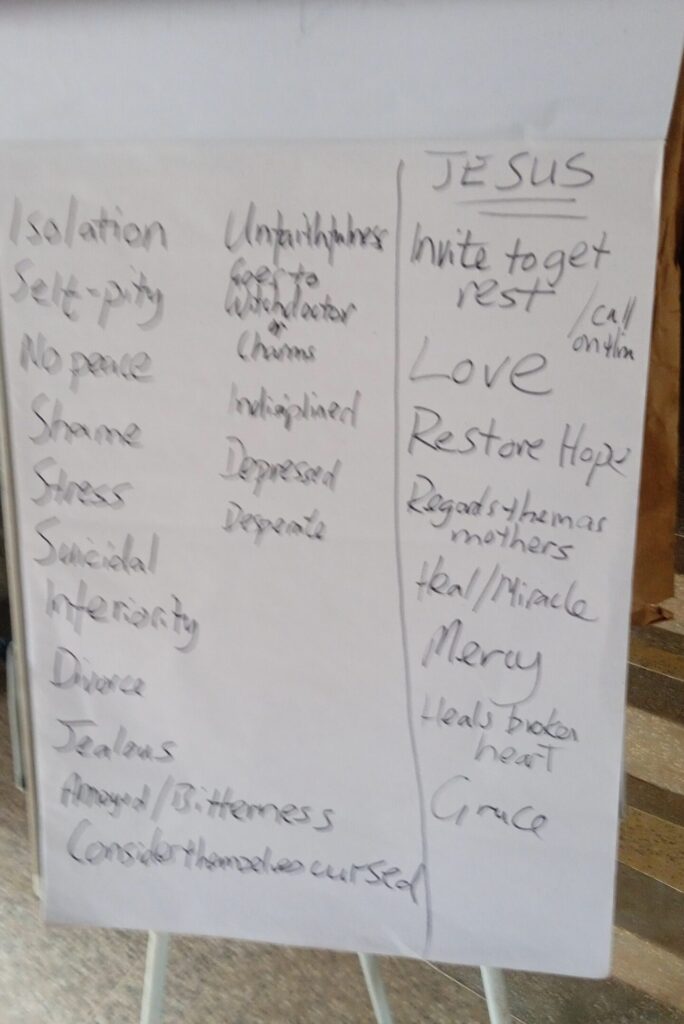 Isolation
Self-pity
No peace
Shame
Stress
Suicidal
Inferiority
Divorce
Jealous
Annoyed/Bitterness
Consider themselves cursed
Unfaithfulness
Goes to
Witchdoctor
or
Charms
Indisiplined
Depressed
Desperate
JESUS
Invite to get
rest
/call
on Him
Love
Restore Hope
Regards them as
mothers
Heal/Miracle
Mercy
Heals broken
heart
Grace